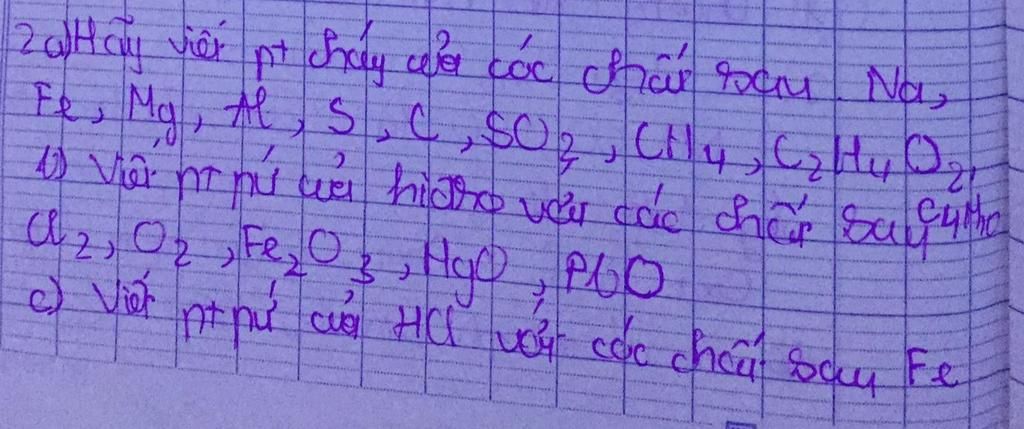 2a) Hãy viết pt cháy của các chất sau Na,
Fe, Mg, Al, S, C, SO2, CH4, C2H4O2,
b) Viết pt pứ của hiđro với các chất sau
Cl2, O2, Fe2O3, HgO, PbO
c) Viết pt pứ của HCl với các chất sau Fe